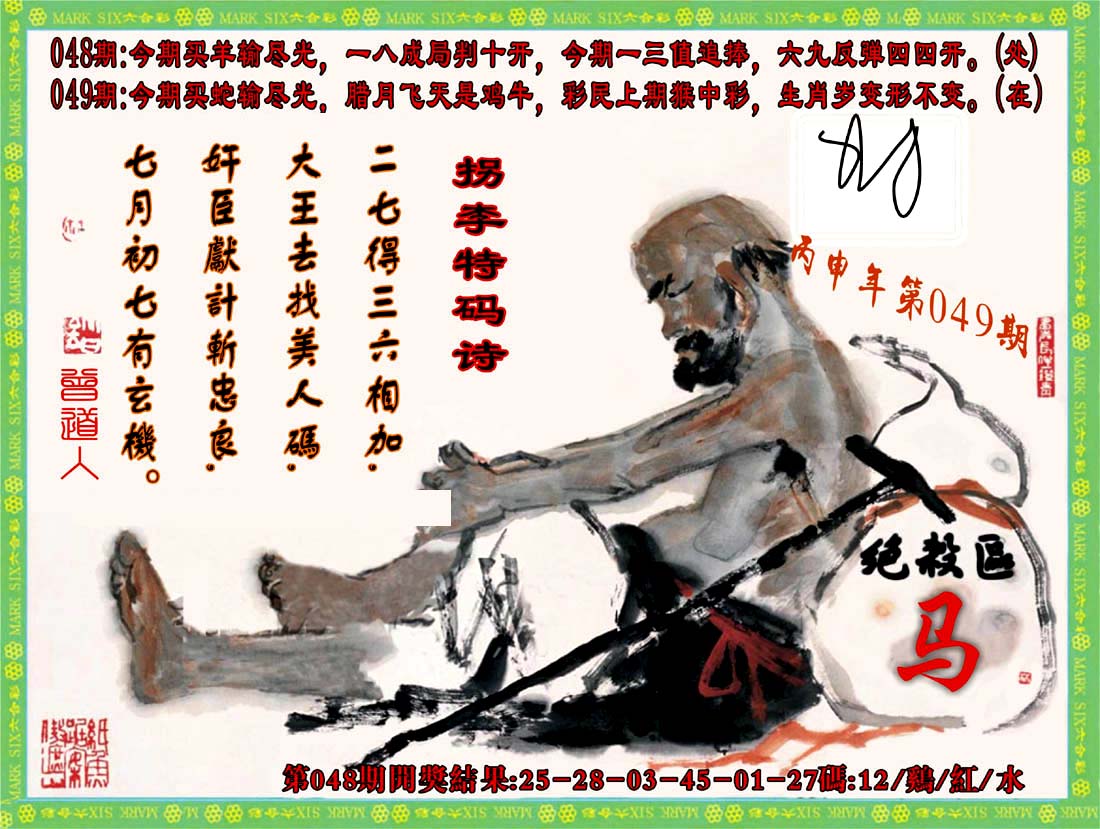 MARK SIX六合彩
048期:今期买羊输尽光，一八成局判十开，今期一三值追捧，六九反弹四四开。(处)
049期:今期买蛇输尽光，腊月飞天是鸡牛，彩民上期猴中彩，生肖岁变形不变。(在)
丙申年第049期
拐李特码诗
二七得三六相加.
大王去找美人碼.
奸臣獻計斬忠良.
七月初七有玄機。
曾道人
绝殺區
马
第048期開獎結果:25-28-03-45-01-27碼:12/鷄/紅/水